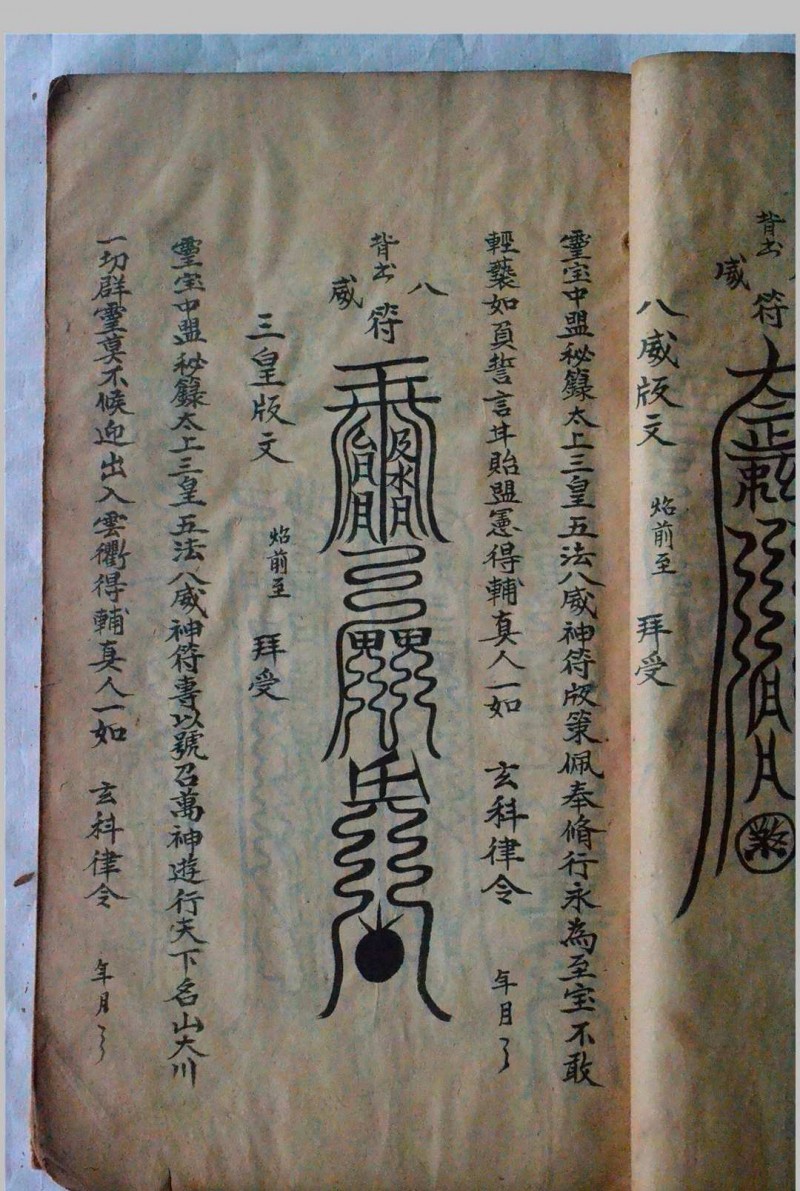 背书
八威符
八威版文 焰前至 拜受
靈宝中盟秘籙太上三皇五法八威神符版策佩奉脩行永為至宝不敢
輕䙝如負誓言甘貽盟憲得輔真人一如 玄科律令 年月
背书
八威符
三皇版文 焰前至 拜受
靈宝中盟秘籙太上三皇五法八威神符專以號召萬神遊行天下名山大川
一切群靈莫不候迎出入雲衢得輔真人一如 玄科律令 年月